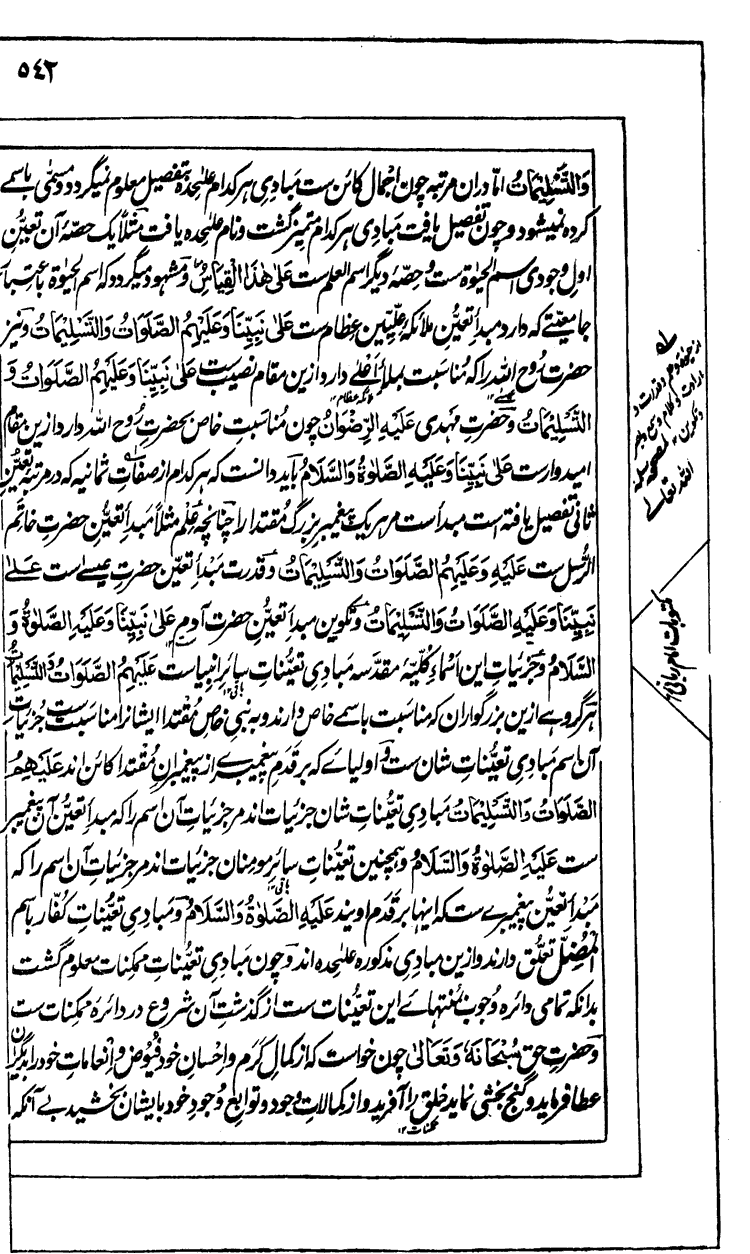 ٥٤٢
وَالتَّسْلِيْمَاتُ امّا دران مرتبه چون اجمال کائن ست مبادیِ هر کدام علیٰحده بتفصیل معلوم نمیگردد و مسمّٰی باسمے
کرده نمیشود و چون تفصیل یافت مبادی هر کدام متمیز گشت و نام علیٰحده یافت مثلاً یک حصّهٔ آن تعیُّنِ
اول وجودی اسم الحیٰوة ست و حصّهٔ دیگر اسم العلم ست عَلٰی هٰذَا الْقِیَاسُ و مشهود میگردد که اسم الحیٰوة باعتبار
جامعیّتے که دارد مبدأ تعیُّن ملائکهٔ علِّیّین عظام ست عَلٰی نَبِیِّنَا وَعَلَیْهِمُ الصَّلَوَاتُ وَالتَّسْلِیْمَاتُ و نیز
حضرتِ رُوح الله را که مُناسبت بملأِ اَعْلٰے دارد ازین مقام نصیب ست عَلٰی نَبِیِّنَا وَعَلَیْهِمُ الصَّلَوَاتُ وَ
التَّسْلِیْمَاتُ و حضرتِ مهدی عَلَیْهِ الرِّضْوَانُ چون مُناسبتِ خاص بحضرتِ رُوح الله دارد ازین مقام
امیدوارست عَلٰی نَبِیِّنَا وَعَلَیْهِ الصَّلٰوةُ وَالسَّلَامُ باید دانست که هر کدام از صفاتِ ثمانیه که در مرتبهٔ تعیُّنِ
ثانی تفصیل یافته است مبدأ است مر هر یک پیغمبر بزرگ مُقتدا را چنانچه علم مثلاً مَبدأ تعیُّنِ حضرتِ خاتَم
الرُّسل ست عَلَیْهِ وَعَلَیْهِمُ الصَّلَوَاتُ وَالتَّسْلِیْمَاتُ و قدرت مَبْدأ تعیّنِ حضرتِ عیسے است عَلٰے
نَبِیِّنَا وَعَلَیْهِ الصَّلَوَاتُ وَالتَّسْلِیْمَاتُ و تکوین مبدأ تعیُّنِ حضرتِ آدم عَلٰی نَبِیِّنَا وَعَلَیْهِ الصَّلٰوةُ وَ
السَّلَامُ و جزئیاتِ این اسماءِ کلّیّهٔ مقدّسه مبادیِ تعیُّناتِ سائر انبیاست عَلَیْهِمُ الصَّلَوَاتُ وَالتَّسْلِیْمَاتُ
هر گروهے ازین بزرگواران که مناسبت باسمے خاص دارند و به نبی خاص مُقتدا ایشانرا مناسبت ست جزئیاتِ
آن اسم مبادیِ تعیُّناتِ شان ست و اولیائے که بر قدمِ پیغمبرے از پیغمبرانِ مُقتدا کائن اند عَلَیْهِمُ
الصَّلَوَاتُ وَالتَّسْلِیْمَاتُ مَبادیِ تعیُّناتِ شان جزئیات اند مر جزئیاتِ آن اسم را که مبدأ تعیُّن آن پیغمبر
ست عَلَیْهِ الصَّلٰوةُ وَالسَّلَامُ و همچنین تعیُّناتِ سائر مومنان جزئیات اند مر جزئیاتِ آن اسم را که
مَبْدأ تعیُّن پیغمبرے ست که اینها بر قدم اویند عَلَیْهِ الصَّلٰوةُ وَالسَّلَامُ و مَبادیِ تعیُّناتِ کفّار باسم
الْمُضِلّ تعلُّق دارند و ازین مبادیِ مذکوره علیٰحده اند و چون مَبادیِ تعیُّناتِ ممکنات معلوم گشت
بدانکه تمامیِ دائرهٔ وجوب مُنتهائے این تعیُّنات ست از گذشتِ آن شروع در دائرهٔ ممکنات ست
و حضرتِ حق سُبْحَانَهٗ وَتَعَالٰی چون خواست که از کمالِ کَرَم و احسانِ خود فُیُوض و اِنعاماتِ خود را بدیگران
عطا فرماید و گنج بخشی نماید خلق را آفرید و از کمالاتِ وجود و توابعِ وُجودِ خود بایشان بخشید بے آنکه
مکتوبات امام ربانی